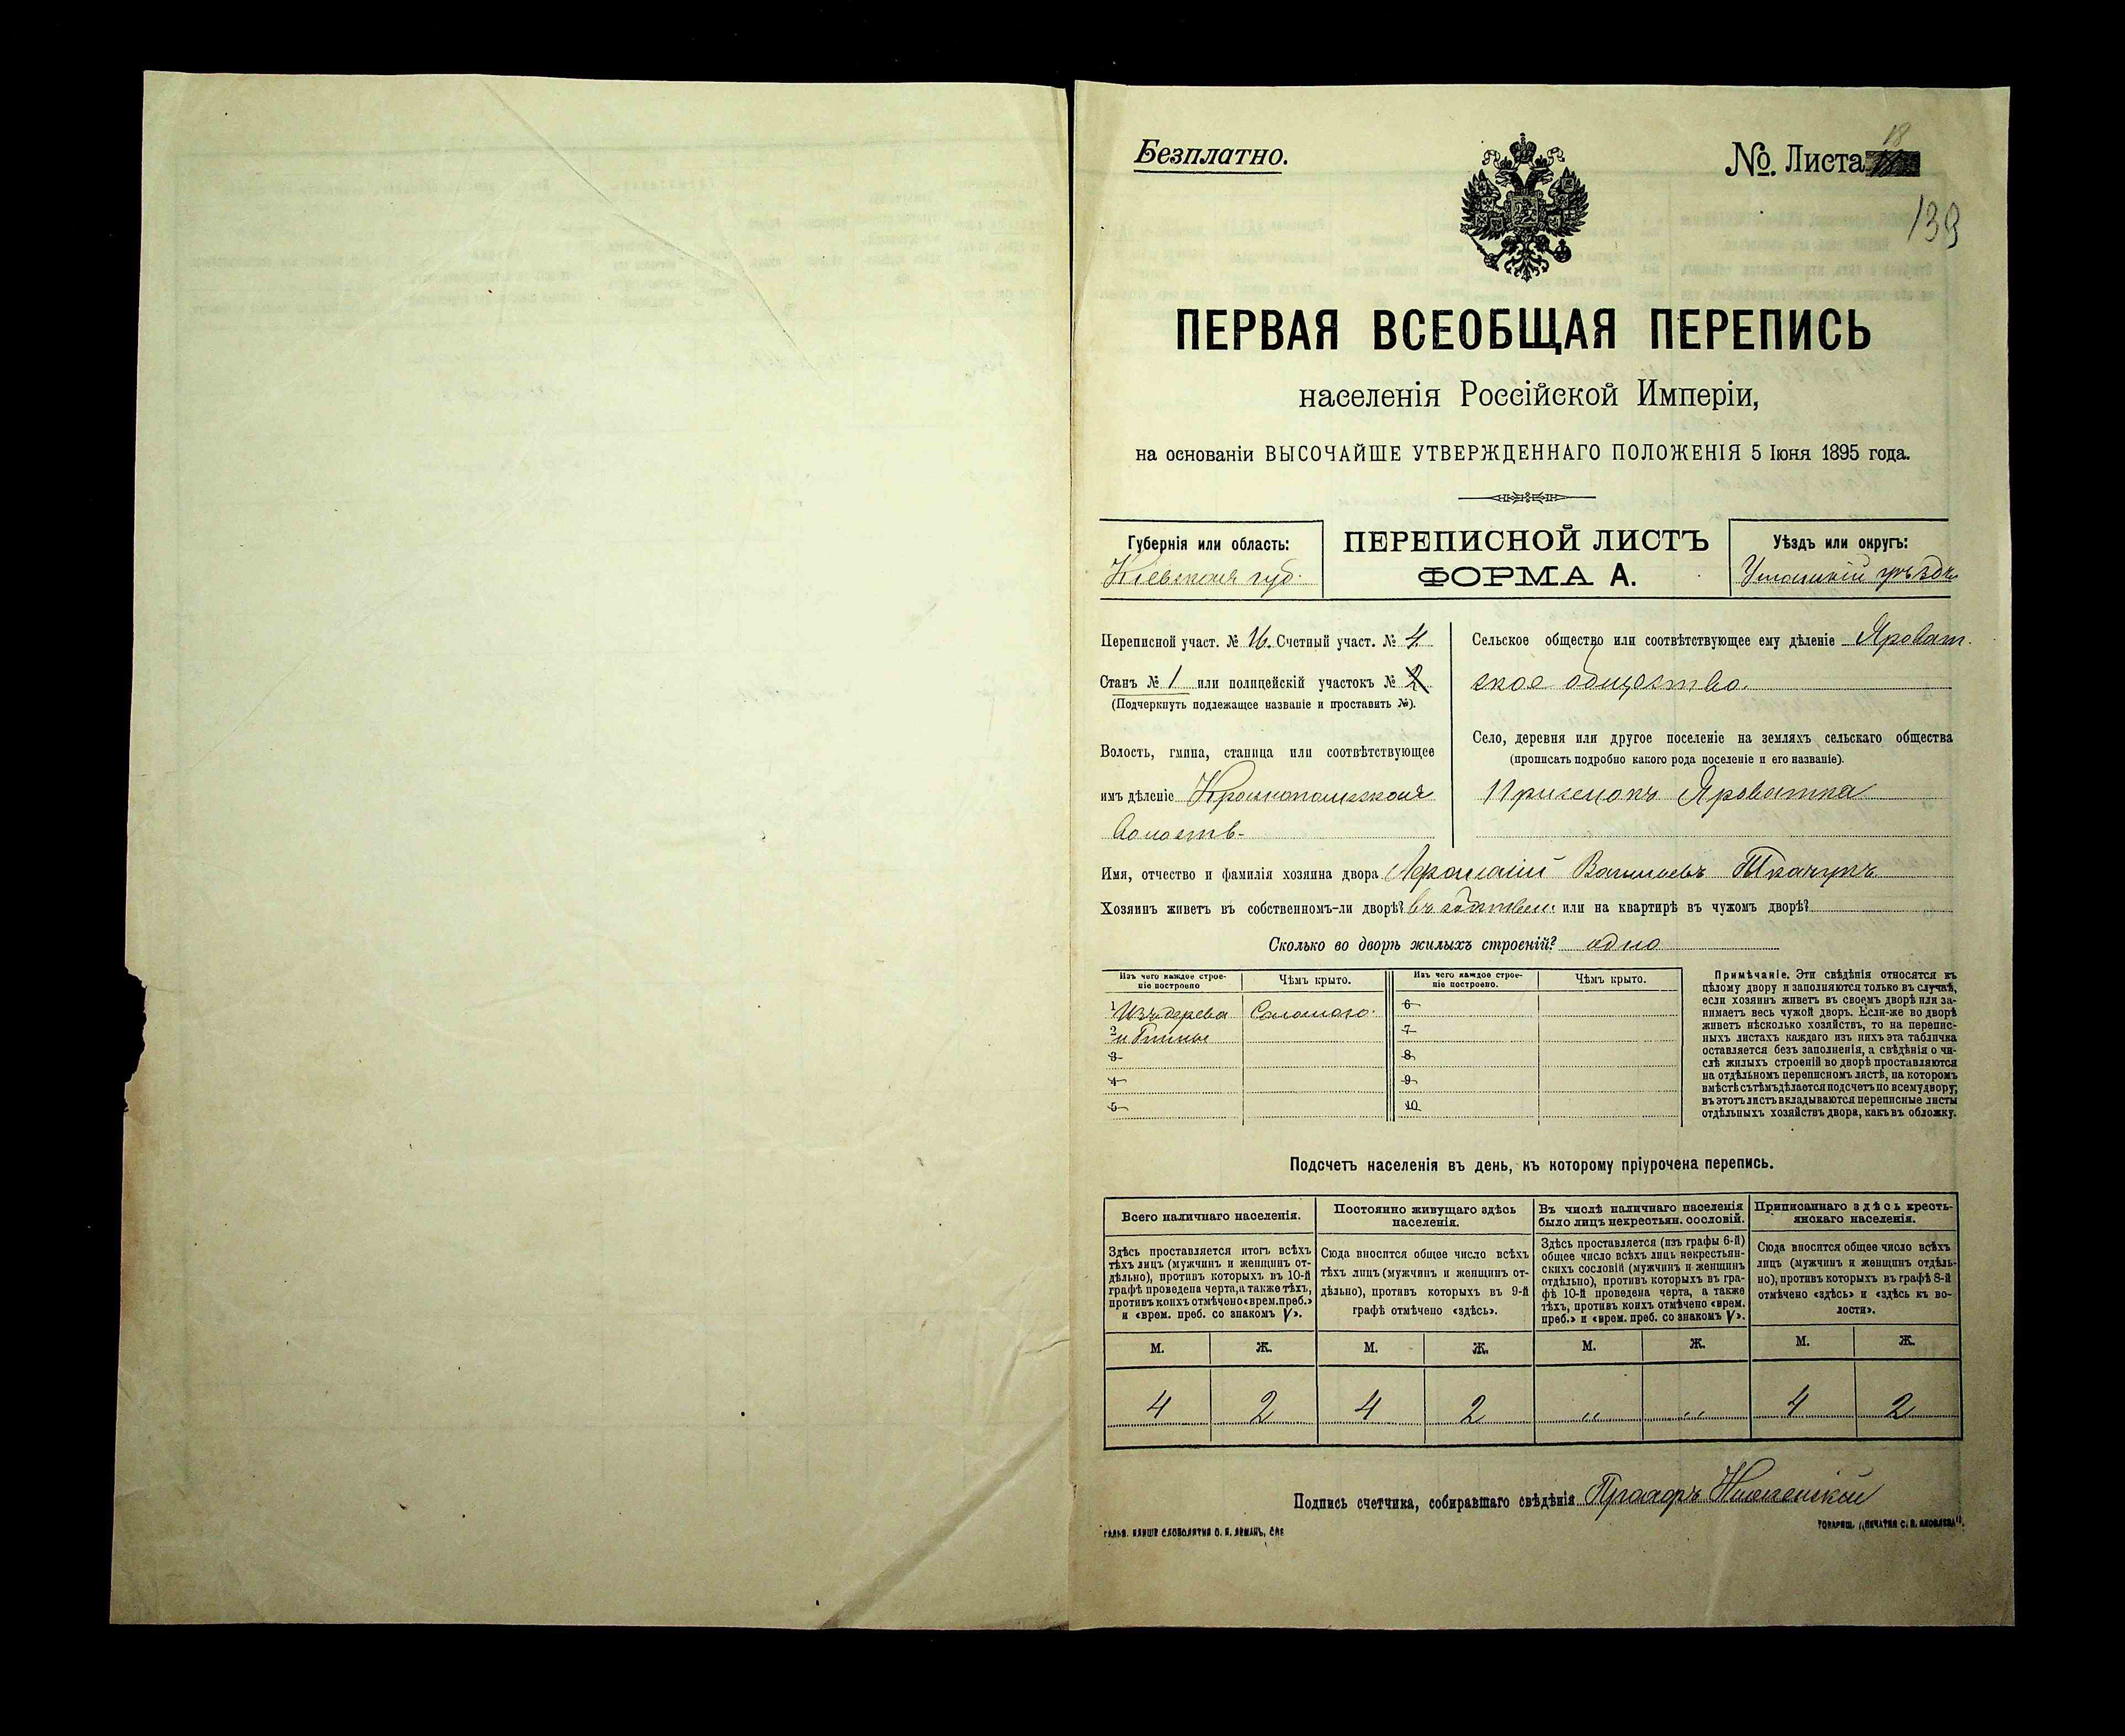 Безплатно.
№. Листа 18
139
ПЕРВАЯ ВСЕОБЩАЯ ПЕРЕПИСЬ
населенія Россійской Имперіи,
на основаніи ВЫСОЧАЙШЕ УТВЕРЖДЕННАГО ПОЛОЖЕНІЯ 5 Іюня 1895 года.
Губернія или область:
Кіевская губ.
ПЕРЕПИСНОЙ ЛИСТЪ
ФОРМА А.
Уѣздъ или округъ:
Уманскій уѣздъ
Переписной участ. № 16. Счетный участ. № 4
Станъ № 1 или полицейскій участокъ № 2
(Подчеркнуть подлежащее названіе и проставить №).
Волость, гмина, станица или соотвѣтствующее
имъ дѣленіе
волость
Сельское общество или соотвѣтствующее ему дѣленіе Яроват-
ское общество.
Село, деревня или другое поселеніе на земляхъ сельскаго общества
(прописать подробно какого рода поселеніе и его названіе).
Приселокъ Яроватка
Имя, отчество и фамилія хозяина двора Васильевъ Ткачукъ
Хозяинъ живетъ въ собственномъ-ли дворѣ? въ или на квартирѣ въ чужомъ дворѣ?
Сколько во дворѣ жилыхъ строеній? одно
Изъ чего каждое строе-
ніе построено
Чѣмъ крыто.
Изъ чего каждое строе-
ніе построено.
Чѣмъ крыто.
1 Изъ дерева Соломою.
2 и Глины
3
4
5
6
7
8
9
10
Примѣчаніе. Эти свѣдѣнія относятся къ
цѣлому двору и заполняются только въ случаѣ,
если хозяинъ живетъ въ своемъ дворѣ или за-
нимаетъ весь чужой дворъ. Если-же во дворѣ
живетъ нѣсколько хозяйствъ, то на перепис-
ныхъ листахъ каждаго изъ нихъ эта табличка
оставляется безъ заполненія, а свѣдѣнія о чи-
слѣ жилыхъ строеній во дворѣ проставляются
на отдѣльномъ переписномъ листѣ, на которомъ
вмѣстѣ съ тѣмъ дѣлается подсчетъ по всему двору;
въ этотъ листъ вкладываются переписные листы
отдѣльныхъ хозяйствъ двора, какъ въ обложку.
Подсчетъ населенія въ день, къ которому пріурочена перепись.
Всего наличнаго населенія.
Здѣсь проставляется итогъ всѣхъ
тѣхъ лицъ (мужчинъ и женщинъ от-
дѣльно), противъ которыхъ въ 10-й
графѣ проведена черта, а также тѣхъ,
противъ коихъ отмѣчено «врем. преб.»
и «врем. преб. со знакомъ V».
Постоянно живущаго здѣсь
населенія.
Сюда вносится общее число всѣхъ
тѣхъ лицъ (мужчинъ и женщинъ от-
дѣльно), противъ которыхъ въ 9-й
графѣ отмѣчено «здѣсь».
Въ числѣ наличнаго населенія
было лицъ некрестьян. сословій.
Здѣсь проставляется (изъ графы 6-й)
общее число всѣхъ лицъ некрестьян-
скихъ сословій (мужчинъ и женщинъ
отдѣльно), противъ которыхъ въ гра-
фѣ 10-й проведена черта, а также
тѣхъ, противъ коихъ отмѣчено «врем.
преб.» и «врем. преб. со знакомъ V».
Приписаннаго здѣсь кресть-
янскаго населенія.
Сюда вносится общее число всѣхъ
лицъ (мужчинъ и женщинъ отдѣль-
но), противъ которыхъ въ графѣ 8-й
отмѣчено «здѣсь» и «здѣсь къ во-
лости».
М. Ж. М. Ж. М. Ж. М. Ж.
4 2 4 2 " " 4 2
Подпись счетчика, собиравшаго свѣдѣнія Прохоръ
ТОВАРИЩ. „ПЕЧАТНЯ С. П. ЯКОВЛЕВА".